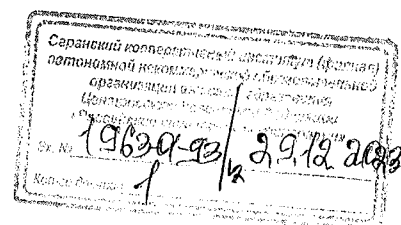 Саранский кооперативный институт (филиал)
автономной некоммерческой образовательной
организации высшего образования
Центросоюза Российской Федерации
Российский университет кооперации
Вх. № 1963-01-93/ 29.12 2023
Кол-во 1